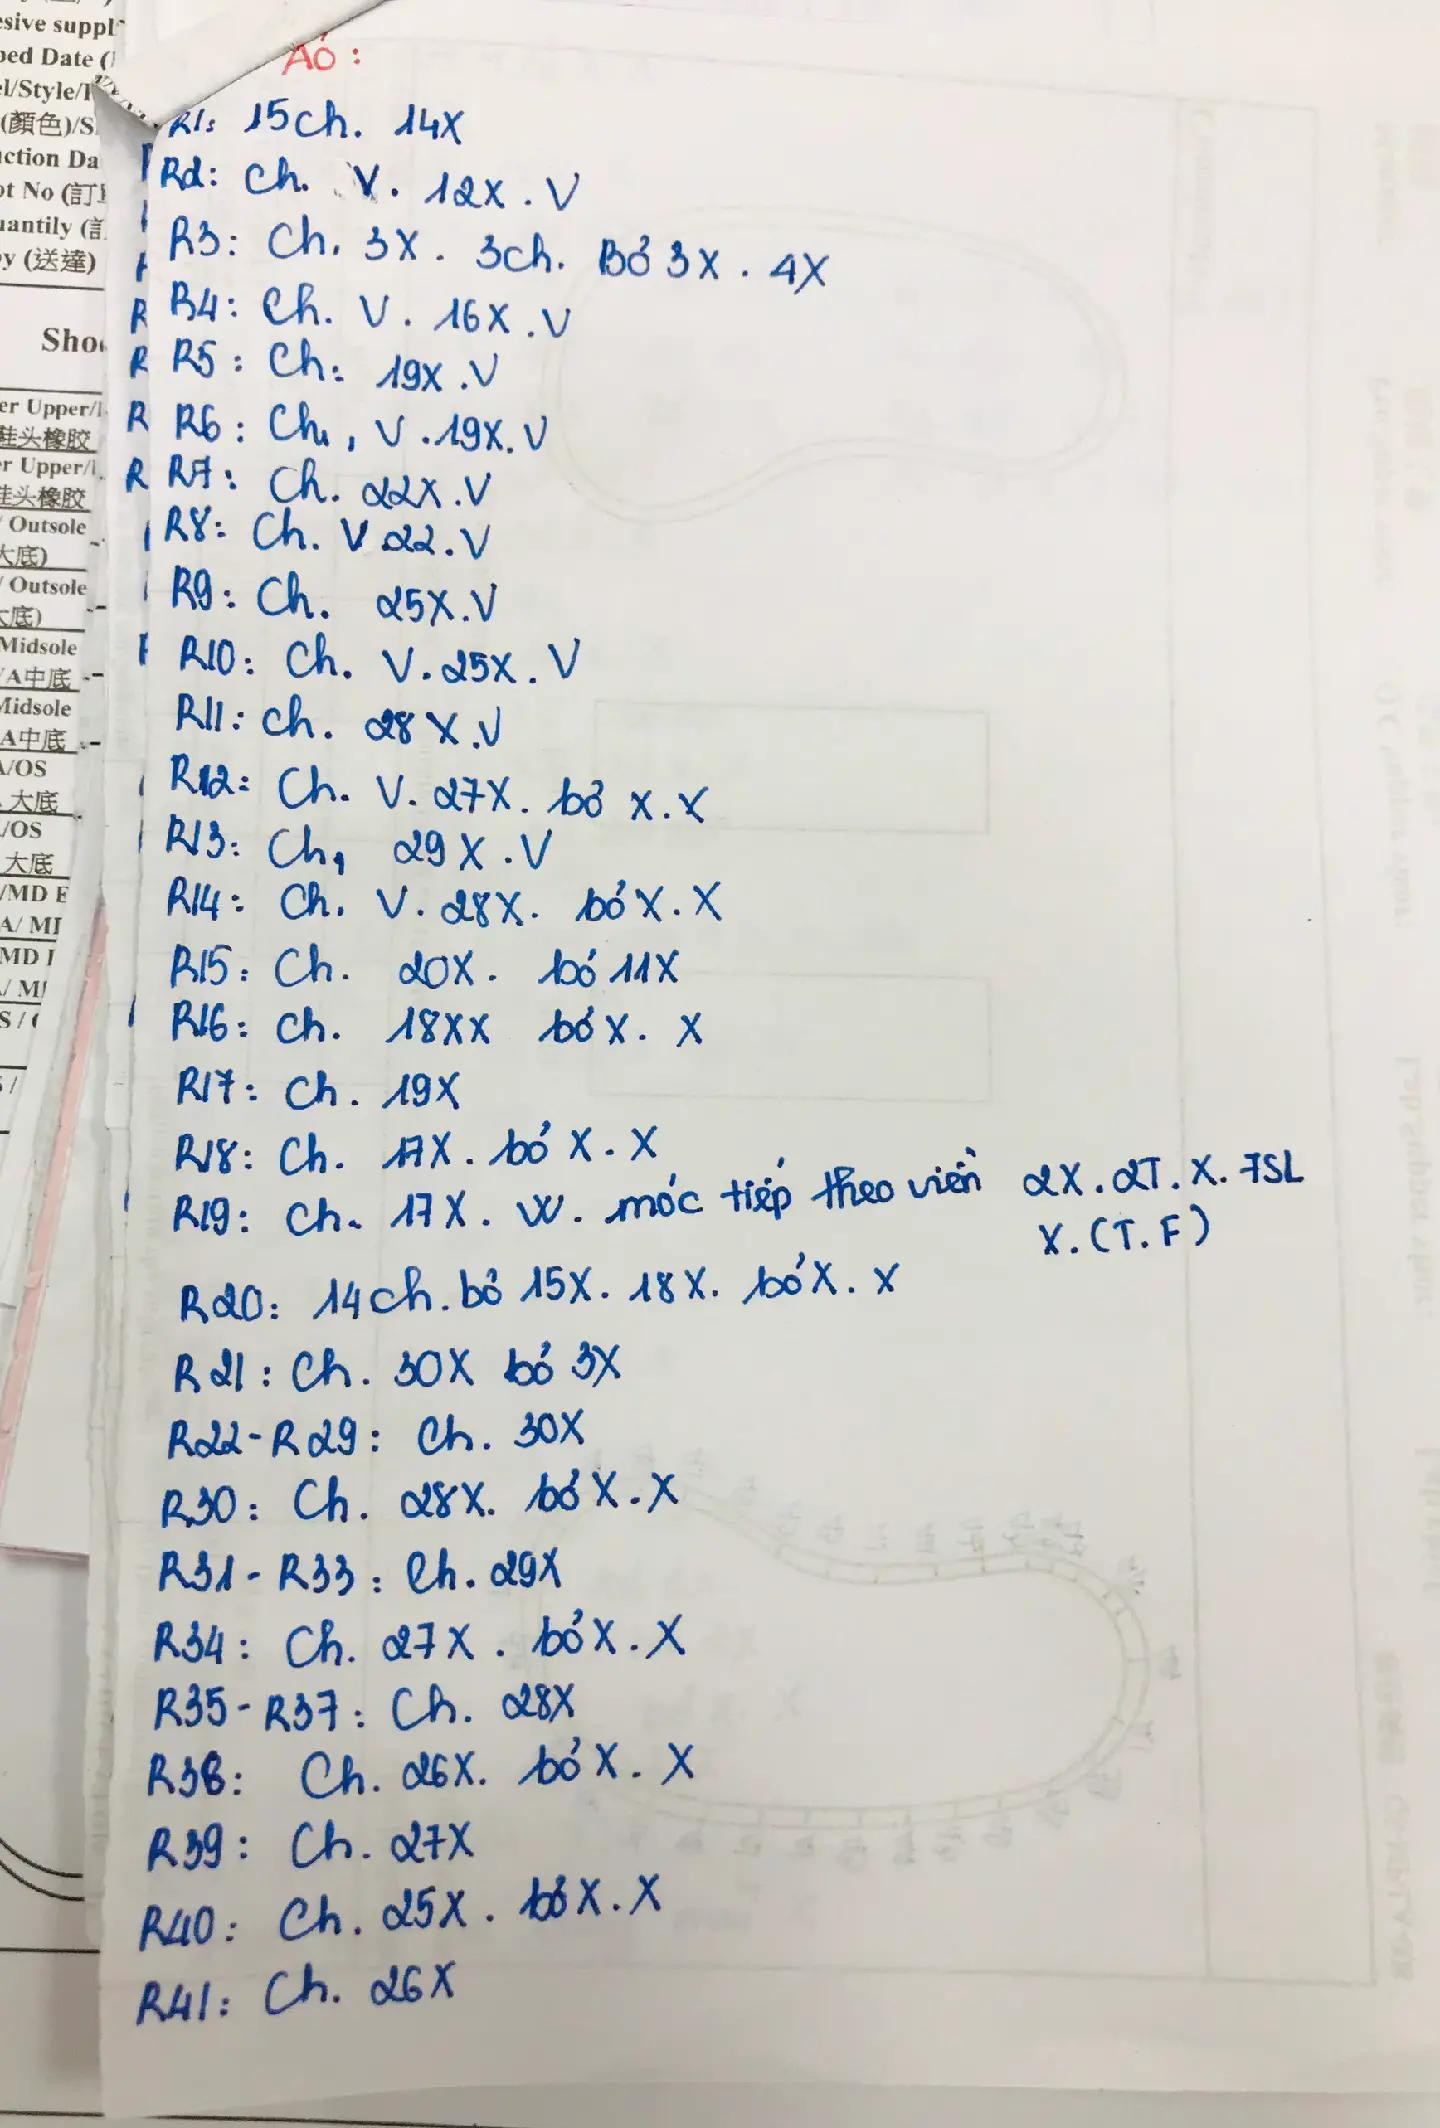 esive suppl
ped Date (
el/Style/
(顏色)/S
uction Da
ot No (訂
uantily (
y (送達)
Sho
er Upper/
鞋头橡胶
er Upper/
鞋头橡胶
Outsole
大底)
/ Outsole
大底)
Midsole
A中底
Midsole
A中底
A/OS
大底
/OS
大底
/MD E
A/ MI
MD I
/ MI
S / (
ÁO :
R1: 15ch. 14X
R2: Ch. V. 12X. V
R3: Ch. 3X. 3ch. Bỏ 3X. 4X
R4: Ch. V. 16X. V
R5: Ch. 19X. V
R6: Ch, V. 19X. V
R7: Ch. 22X. V
R8: Ch. V 22. V
R9: Ch. 25X. V
R10: Ch. V. 25X. V
R11: Ch. 28X. V
R12: Ch. V. 27X. bỏ X. X
R13: Ch, 29X. V
R14: Ch. V. 28X. bỏ X. X
R15: Ch. 20X. bỏ 11X
R16: Ch. 18XX bỏ X. X
R17: Ch. 19X
R18: Ch. 17X. bỏ X. X
R19: Ch. 17X. W. móc tiếp theo viền 2X. 2T. X. 7SL
X. (T. F)
R20: 14ch. bỏ 15X. 18X. bỏ X. X
R21: Ch. 30X bỏ 3X
R22-R29: Ch. 30X
R30: Ch. 28X. bỏ X. X
R31-R33: Ch. 29X
R34: Ch. 27X. bỏ X. X
R35-R37: Ch. 28X
R38: Ch. 26X. bỏ X. X
R39: Ch. 27X
R40: Ch. 25X. bỏ X. X
R41: Ch. 26X